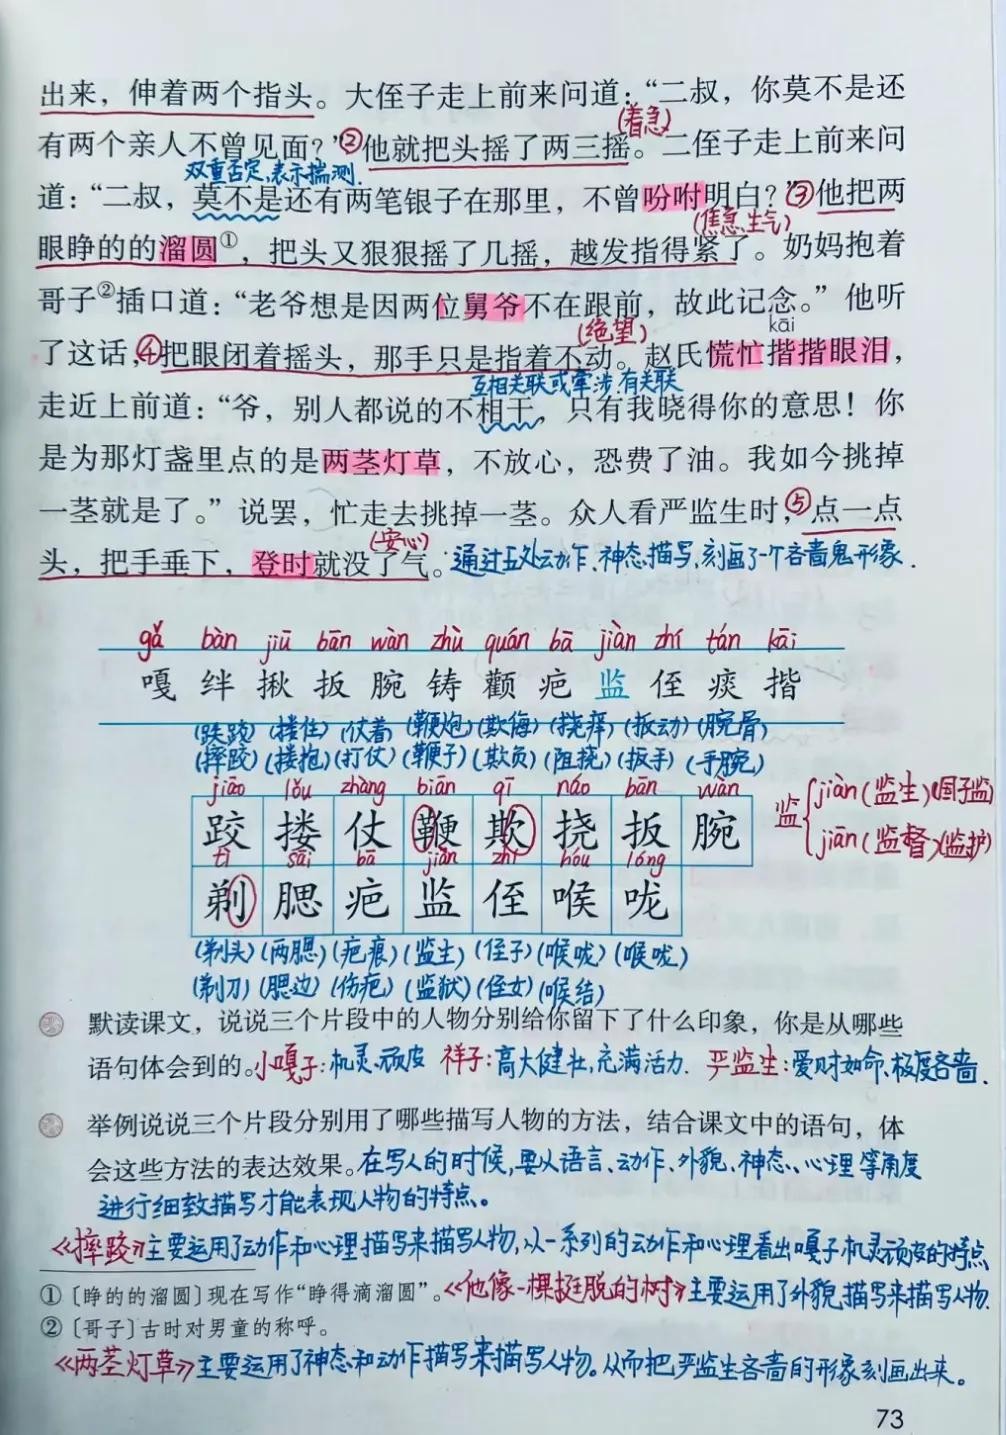 出来，伸着两个指头。大侄子走上前来问道：“二叔，你莫不是还
(着急)
有两个亲人不曾见面？”②他就把头摇了两三摇。二侄子走上前来问
双重否定,表示揣测.
道：“二叔，莫不是还有两笔银子在那里，不曾吩咐明白？”③他把两
(焦急、生气)
眼睁的的溜圆①，把头又狠狠摇了几摇，越发指得紧了。奶妈抱着
哥子②插口道：“老爷想是因两位舅爷不在跟前，故此记念。”他听
(绝望) kāi
了这话，④把眼闭着摇头，那手只是指着不动。赵氏慌忙揩揩眼泪，
互相关联或牵涉,有关联
走近上前道：“爷，别人都说的不相干，只有我晓得你的意思！你
是为那灯盏里点的是两茎灯草，不放心，恐费了油。我如今挑掉
一茎就是了。”说罢，忙走去挑掉一茎。众人看严监生时，⑤点一点
(安心)
头，把手垂下，登时就没了气。通过五处动作、神态描写,刻画了一个吝啬鬼形象.
gǎ bàn jiū bān wàn zhù quán bā jiàn zhí tán kāi
嘎 绊 揪 扳 腕 铸 颧 疤 监 侄 痰 揩
(跌跤) (搂住) (仗着) (鞭炮) (欺侮) (挠痒) (扳动) (腕骨)
(摔跤) (搂抱) (打仗) (鞭子) (欺负) (阻挠) (扳手) (手腕)
jiāo lǒu zhàng biān qī náo bān wàn
跤 搂 仗 鞭 欺 挠 扳 腕
监 jiàn (监生) (国子监)
jiān (监督) (监护)
tì sāi bā jiān zhí hóu lóng
剃 腮 疤 监 侄 喉 咙
(剃头) (两腮) (疤痕) (监生) (侄子) (喉咙) (喉咙)
(剃刀) (腮边) (伤疤) (监狱) (侄女) (喉结)
默读课文，说说三个片段中的人物分别给你留下了什么印象，你是从哪些
语句体会到的。小嘎子：机灵、顽皮 祥子：高大健壮,充满活力. 严监生：爱财如命、极度吝啬.
举例说说三个片段分别用了哪些描写人物的方法，结合课文中的语句，体
会这些方法的表达效果。在写人的时候,要从语言、动作、外貌、神态、心理等角度
进行细致描写才能表现人物的特点。
《摔跤》主要运用了动作和心理描写来描写人物,从一系列的动作和心理看出嘎子机灵顽皮的特点
①〔睁的的溜圆〕现在写作“睁得滴溜圆”。《他像一棵挺脱的树》主要运用了外貌描写来描写人物.
②〔哥子〕古时对男童的称呼。
《两茎灯草》主要运用了神态和动作描写来描写人物。从而把严监生吝啬的形象刻画出来。
73